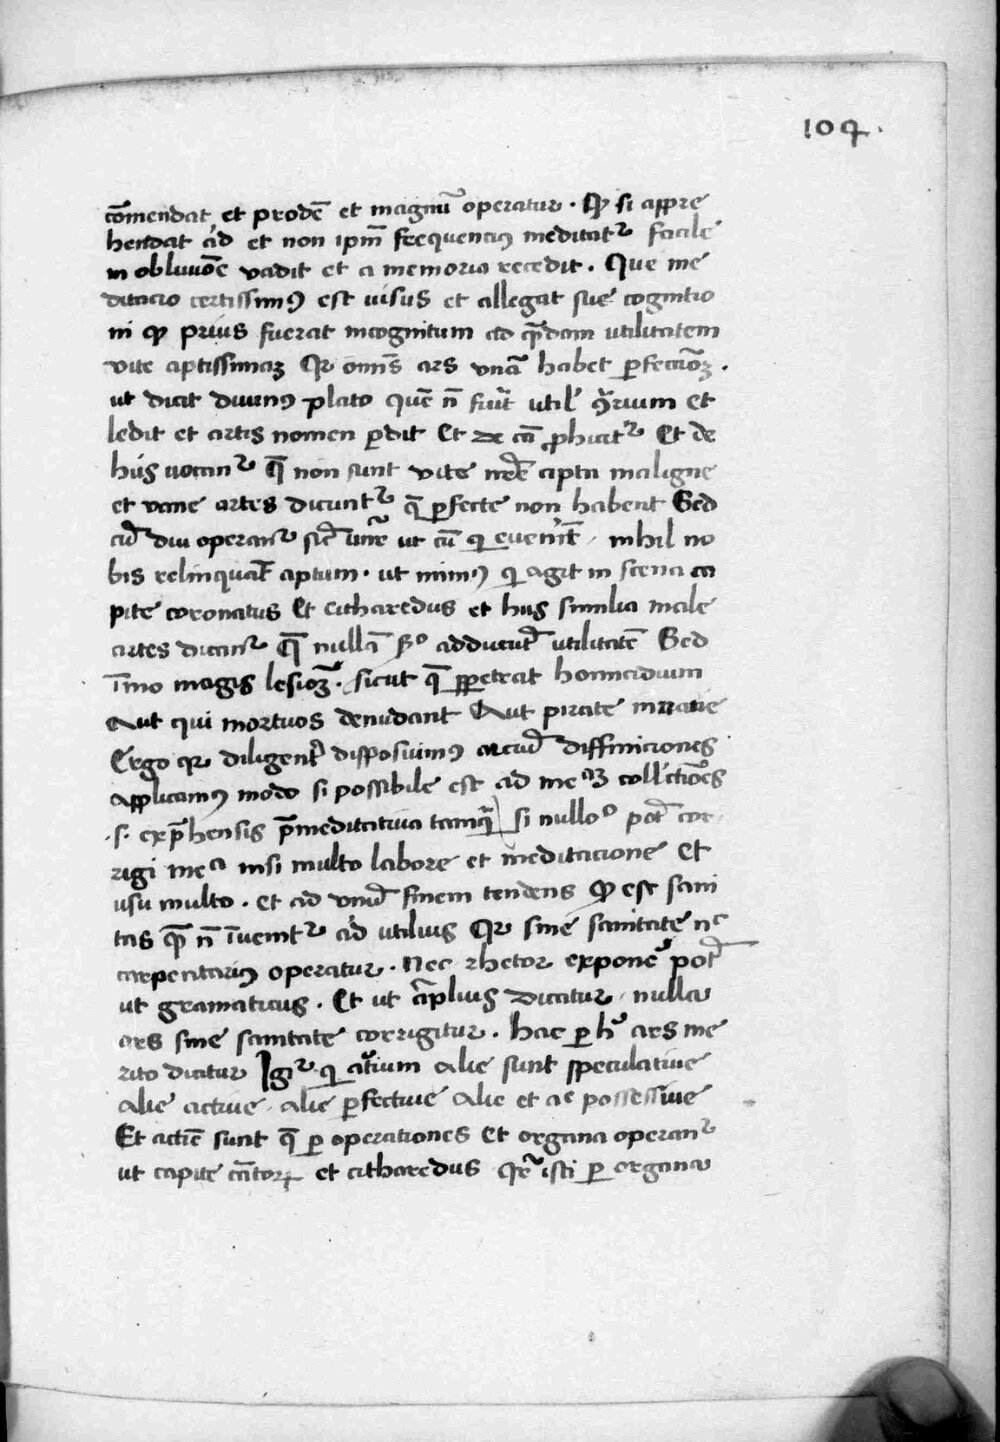 104.
cōmendat et prodē et magnū operatur. Qɔ si appre
hendat id et non ipm̄ frequencius meditatᷣ facile
in oblivōe vadit et a memoria recedit. Que me
ditacio certissimꝰ est uisus et allegat sue cognitio
ni qɔ prius fuerat incognitum ad q̄dam utilitatem
vite aptissimaꝫ Qr omīs ars vnā habet ꝑfectiōꝫ.
ut dicit divinꝰ plato quē n̄ fuit util' ꝯrium Et
ledit et artis nomen ꝑdit Et de cā ꝓhicitᷣ Et de
hijs uocanᷣ q̄ non sunt vite apta maligne
et vane artes dicuntᷣ q̄ ꝑfecte non habent Sed
cū diu operanᷣ sic̄ ut cū qi evenit, nihil no
bis relinquat aptum. ut mimꝰ qi agit in scena ca
pite coronatus Et citharedus et hijs similia male
artes dicunᷣ q̄ nullā adducut̄ utilitatē Sed
īmo magis lesioꝫ. sicut q̄ ꝑpetrat homicidium
Aut qui mortuos denudant Aut pirate
Ergo qr diligent̄ disposuimꝰ diffiniciones
applicamꝰ modo si possibile est ad meᵃꝫ collectiōes
.s. exp̄hensis p̄meditativa tamq̄ si nulloᵒ pot̄ cor
rigi meᵃ nisi multo labore et meditacione Et
usu multo. et ad vnū finem tendens qɔ est sani
tas q̄ n̄ īuenitᷣ ad utilius Qr sine sanitate nᶜ
carpentariꝰ operatur. Nec rhetor exponeᷣ pot̄
ut gramaticus. Et ut āplius dicatur, nulla
ars sine sanitate corrigitur. hac ꝑ h° ars me
rito dicitur Igᷣ qi artium alie sunt speculative
alie active. alie ꝑfective Alie et ac possessive
Et actiē sunt q̄ ꝑ operationes et organa operanᷣ
ut capite cātoꝝ et citharedus Qr isti ꝑ organa